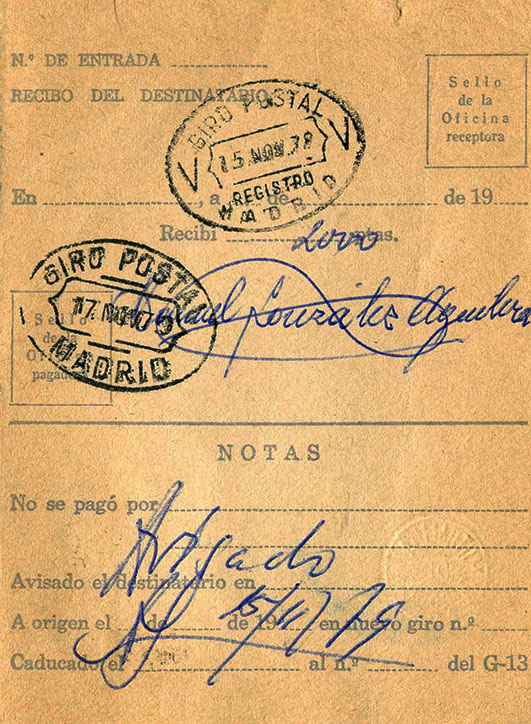 N.º DE ENTRADA
RECIBO DEL DESTINATARIO
Sello
de la
Oficina
receptora
GIRO POSTAL
15 NOV. 79
REGISTRO
MADRID
En , a de de 19
Recibí 2000 ptas.
GIRO POSTAL
17 NOV 79
MADRID
Sello
de la
Oficina
pagadora
González Aguilera
NOTAS
No se pagó por
Avisado el destinatario en
15/11/79
A origen el de de 19 en nuevo giro n.º
Caducado el al n.º del G-13